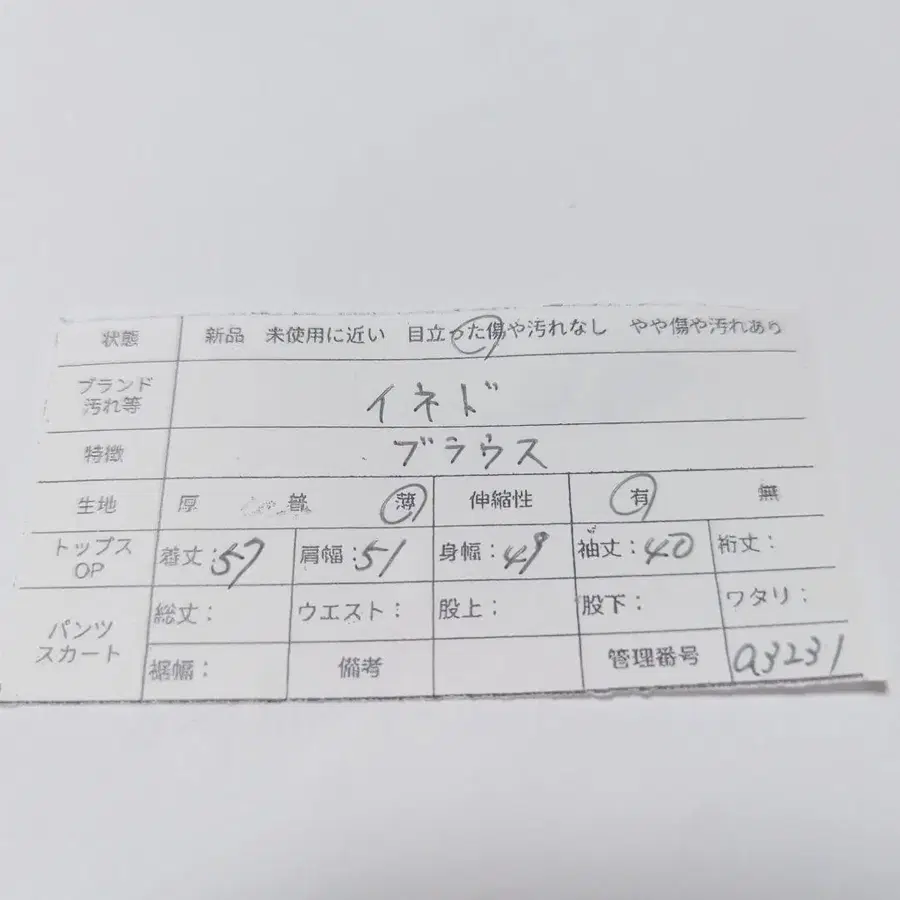 状態 新品 未使用に近い 目立った傷や汚れなし やや傷や汚れあり
ブランド
汚れ等
イネド
特徴 ブラウス
生地 厚 普 薄 伸縮性 有 無
トップス
OP
着丈:57 肩幅:51 身幅:49 袖丈:40 裄丈:
パンツ
スカート
総丈: ウエスト: 股上: 股下: ワタリ:
裾幅: 備考 管理番号 a3231